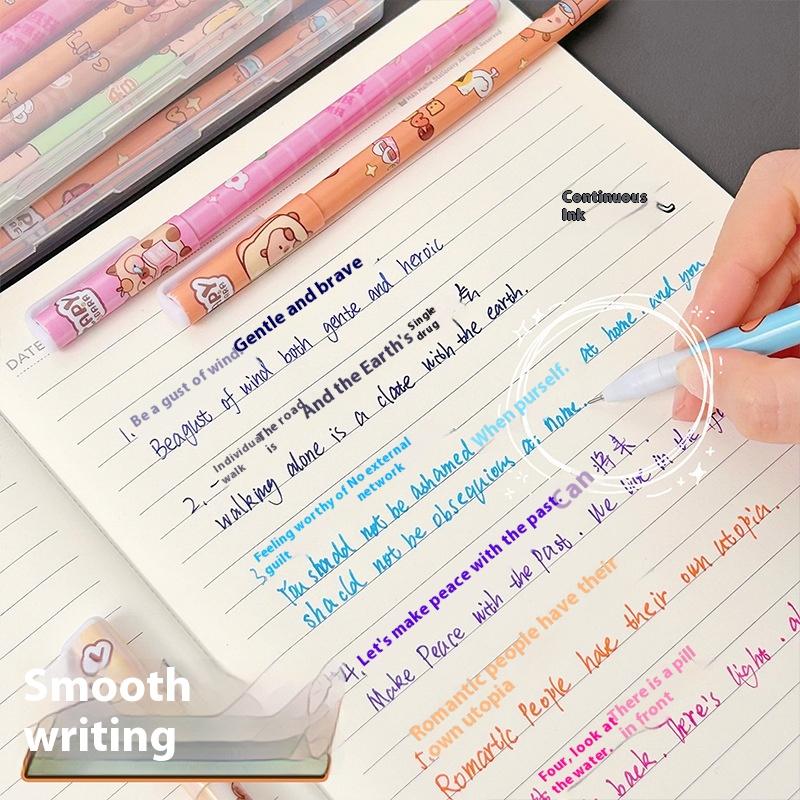 Continuous
Ink
DATE
Gentle and brave
1. Be a gust of wind
Beagust of wind both gentle and heroic
Individual walk
The road is
And the Earth's
Single drug
2.
walking alone is a date with the earth.
Feeling worthy of guilt
No external network
When purself.
at home. and you
3.
You should not be ashamed
should not be obsequious at home.
Can 将来.
4. Let's make peace with the past.
Make Peace with the Past. We live in the
Romantic people have their
5. own utopia
Romantic People have their own utopia.
Four, look at the water,
There is a pill in front
back. There's light.
Smooth
writing